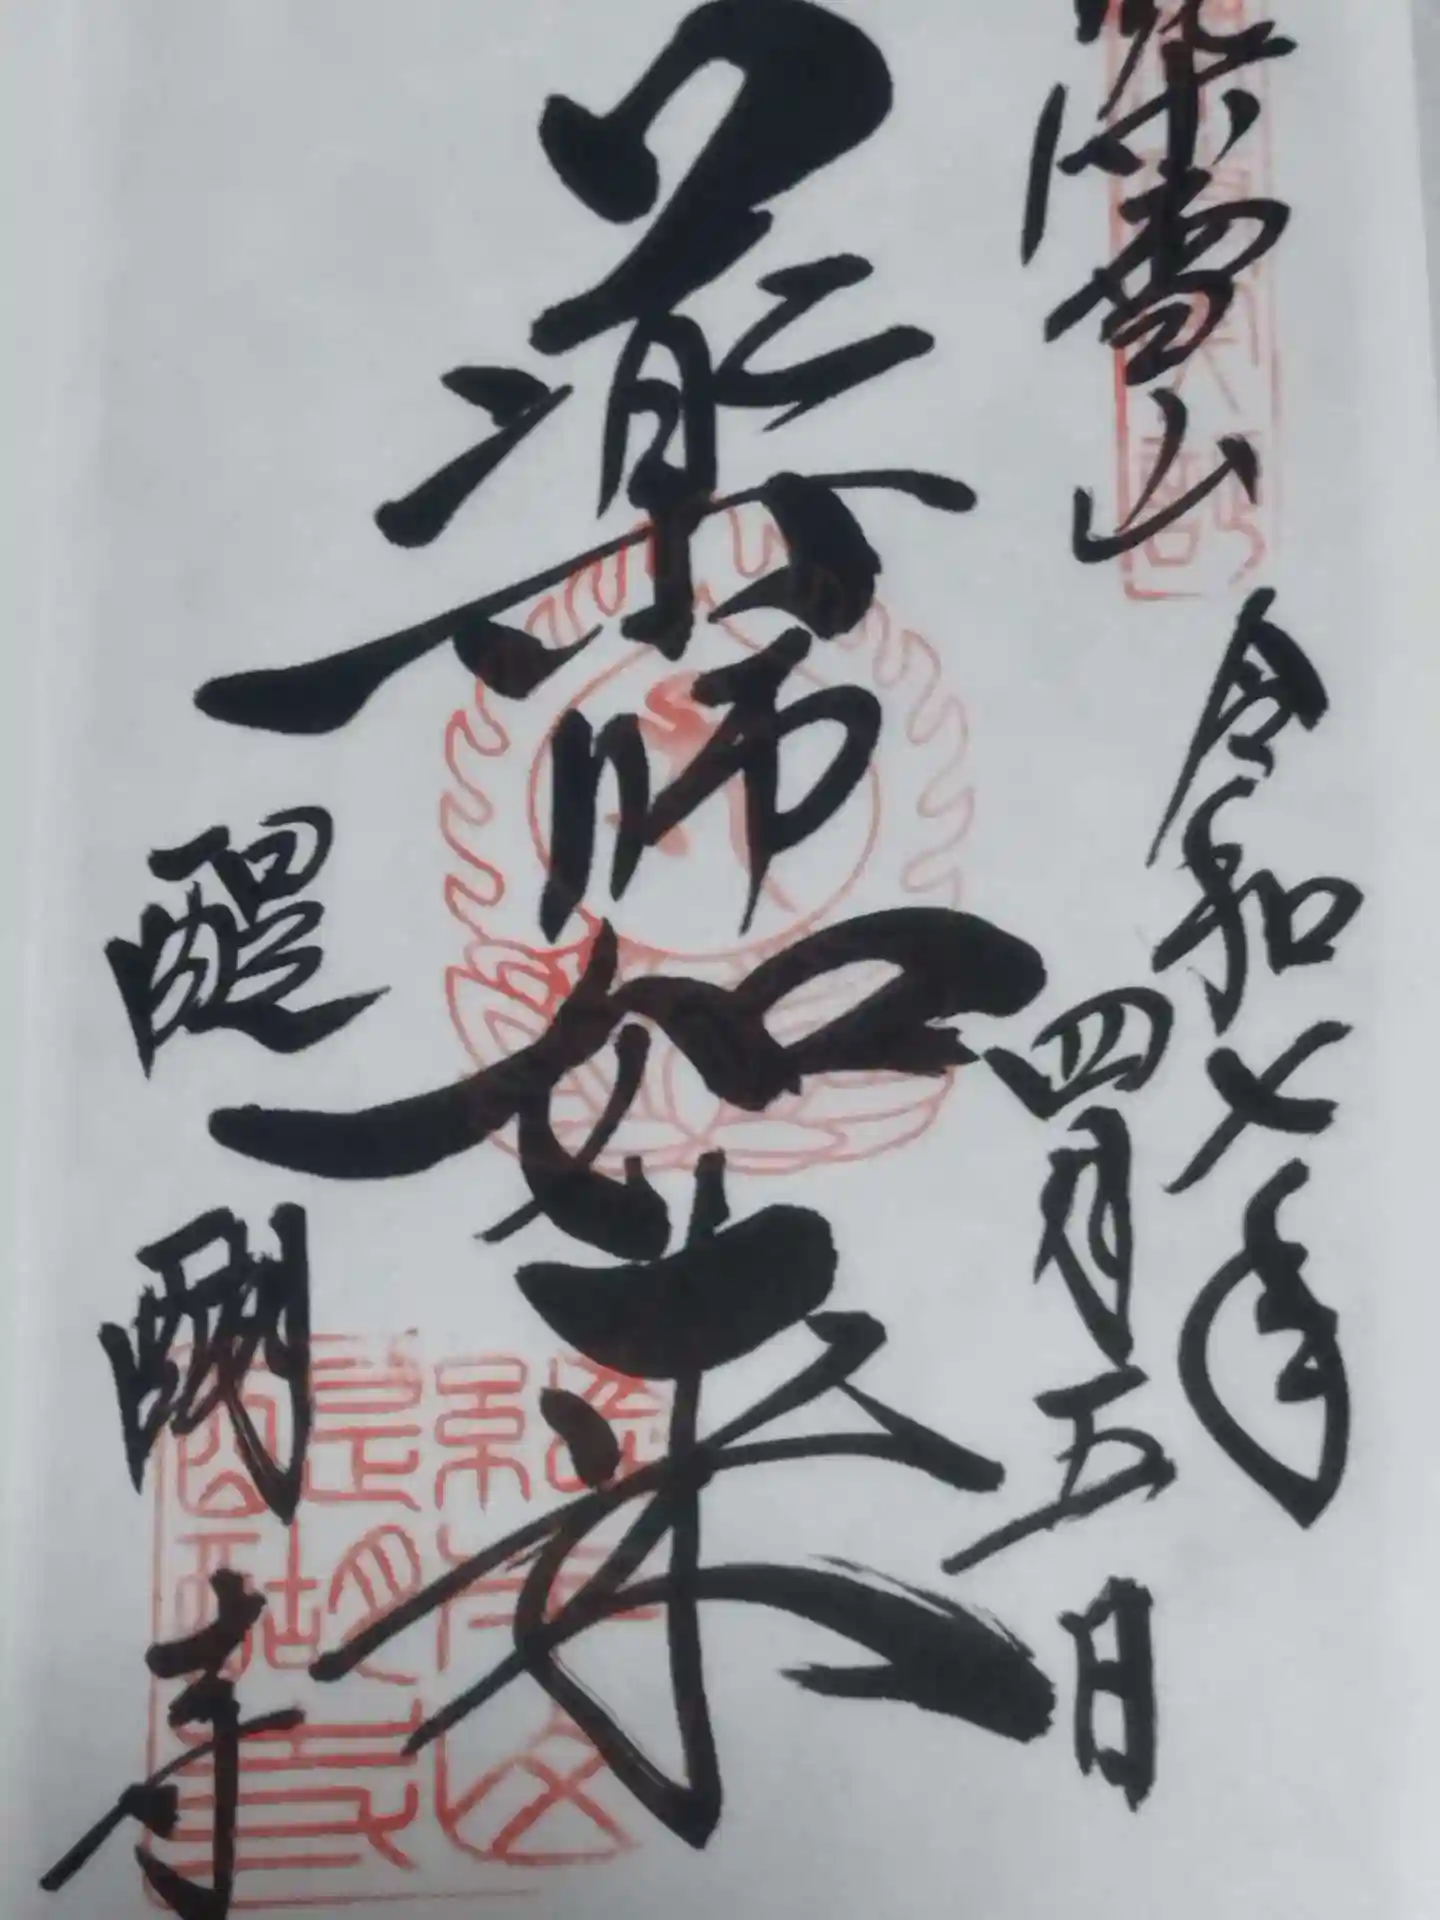 深雪山
令和七年
四月五日
薬師如来
醍醐寺